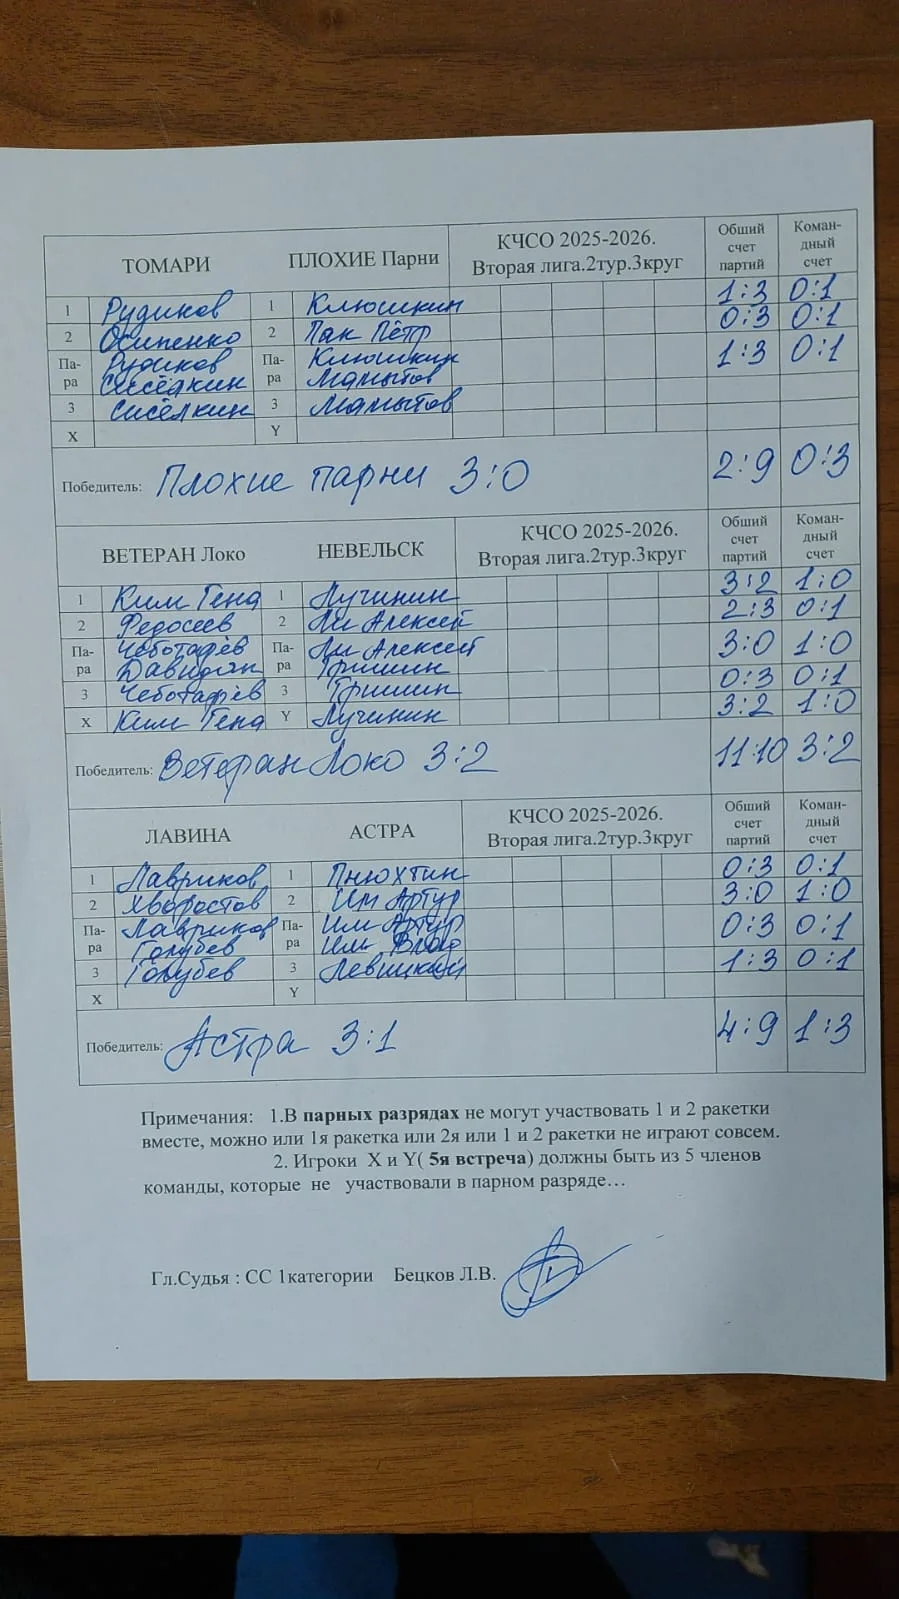 ТОМАРИ ПЛОХИЕ Парни КЧСО 2025-2026. Вторая лига.2тур.3круг Общий счет партий Коман-дный счет
1 Рудиков 1 Клюшкин 1:3 0:1
2 Осипенко 2 Пак Пётр 0:3 0:1
Па-ра Рудиков Па-ра Клюшкин 1:3 0:1
Сисёлкин Мамытов
3 Сисёлкин 3 Мамытов
X Y
Победитель: Плохие парни 3:0 2:9 0:3
ВЕТЕРАН Локо НЕВЕЛЬСК КЧСО 2025-2026. Вторая лига.2тур.3круг Общий счет партий Коман-дный счет
1 Ким Гена 1 Лучинин 3:2 1:0
2 Федосеев 2 Ли Алексей 2:3 0:1
Па-ра Чеботарёв Па-ра Ли Алексей 3:0 1:0
Давидян Гришин
3 Чеботарёв 3 Гришин 0:3 0:1
X Ким Гена Y Лучинин 3:2 1:0
Победитель: Ветеран Локо 3:2 11:10 3:2
ЛАВИНА АСТРА КЧСО 2025-2026. Вторая лига.2тур.3круг Общий счет партий Коман-дный счет
1 Лавриков 1 Пнюхтин 0:3 0:1
2 Хворостов 2 Им Артур 3:0 1:0
Па-ра Лавриков Па-ра Им Артур 0:3 0:1
Голубев Им Влад
3 Голубев 3 Левицкий 1:3 0:1
X Y
Победитель: Астра 3:1 4:9 1:3
Примечания: 1.В парных разрядах не могут участвовать 1 и 2 ракетки
вместе, можно или 1я ракетка или 2я или 1 и 2 ракетки не играют совсем.
2. Игроки X и Y( 5я встреча) должны быть из 5 членов
команды, которые не участвовали в парном разряде…
Гл.Судья : СС 1категории Бецков Л.В.